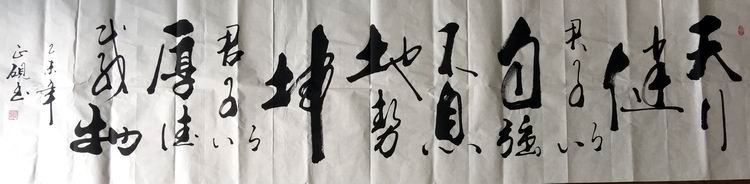 天行
健
君子以
自強
不息
地勢
坤
君子以
厚德
載物
乙未年
正硯書